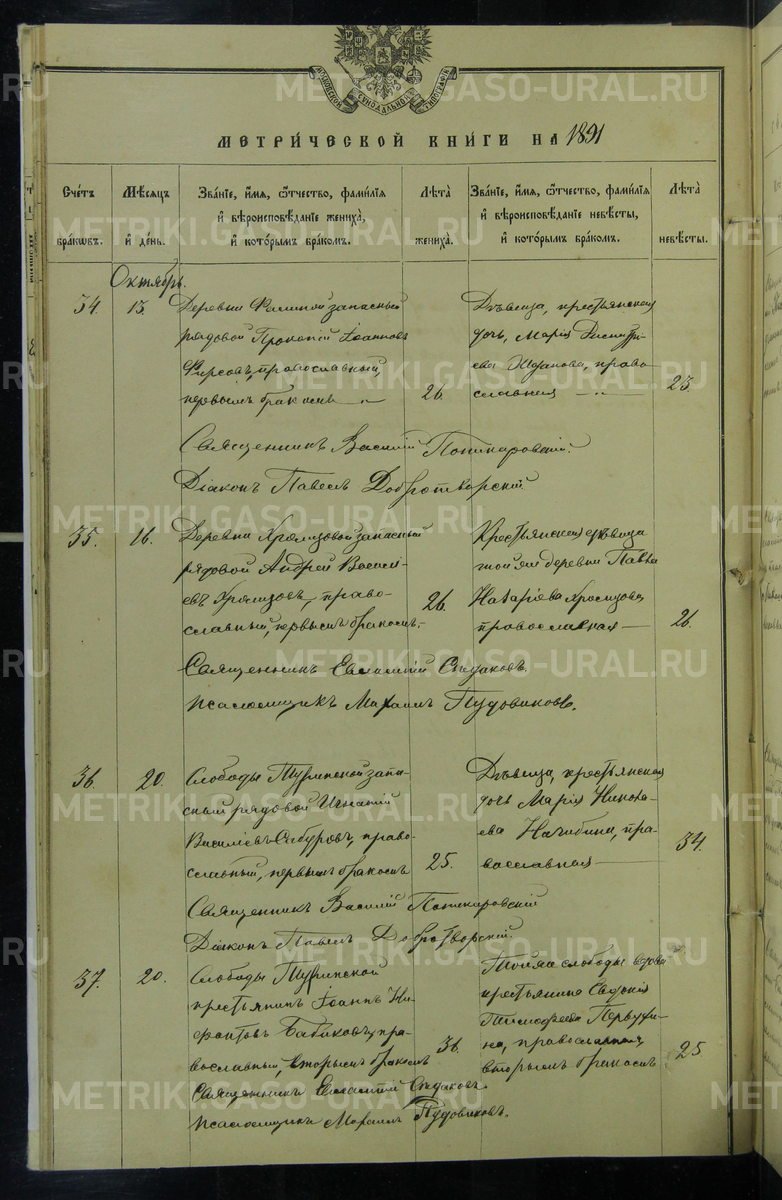 МОСКОВСКОЙ СѴНОДАЛЬНОЙ ТИПОГРАФІИ
МЕТРИ́ЧЕСКОЙ КНИ́ГИ НА 1891
Сче́тъ бра́кѡвъ.
Мѣ́сѧцъ и҆ де́нь.
Зва́нїе, и҆́мѧ, ѻ҆́тчество, фами́лїѧ и҆ вѣроисповѣ́данїе жениха̀, и҆ кото́рымъ бра́комъ.
Лѣ́та жениха̀.
Зва́нїе, и҆́мѧ, ѻ҆́тчество, фами́лїѧ и҆ вѣроисповѣ́данїе невѣ́сты, и҆ кото́рымъ бра́комъ.
Лѣ́та невѣ́сты.
Октябрь.
34. 13. Деревни запасный
рядовой Прокопій Іоанновъ
Фирсовъ, православный,
первымъ бракомъ — 26.
Дѣвица, крестьянская
дочь, Марія
ева право-
славная — 23.
Священникъ Василій
Діаконъ Павелъ Добротворскій.
35. 16. Деревни Храмцовой запасный
рядовой Андрей Василь-
евъ Храмцовъ, право-
славный, первымъ бракомъ, 26.
Крестьянская дѣвица
той же деревни
Назаріева Храмцова
православная — 26.
Священникъ Евлампій
псаломщикъ Пудовиковъ.
36. 20. Слободы Туринской запа-
сный рядовой Игнатій
Василіевъ право-
славный, первымъ бракомъ 25.
Дѣвица, крестьянская
дочь Марія Никола-
ева пра-
вославная — 34.
Священникъ Василій
Діаконъ Павелъ Добротворскій.
37. 20. Слободы Туринской
крестьянинъ Іоаннъ Ни-
фонтовъ Бабиковъ, пра-
вославный, вторымъ бракомъ 36.
Тойже слободы вдова
крестьянина Евдокія
Тимофеева Первухи-
на, православная,
вторымъ бракомъ. 25
Священникъ Евлампій
псаломщикъ Пудовиковъ.
METRIKI.GASO-URAL.RU